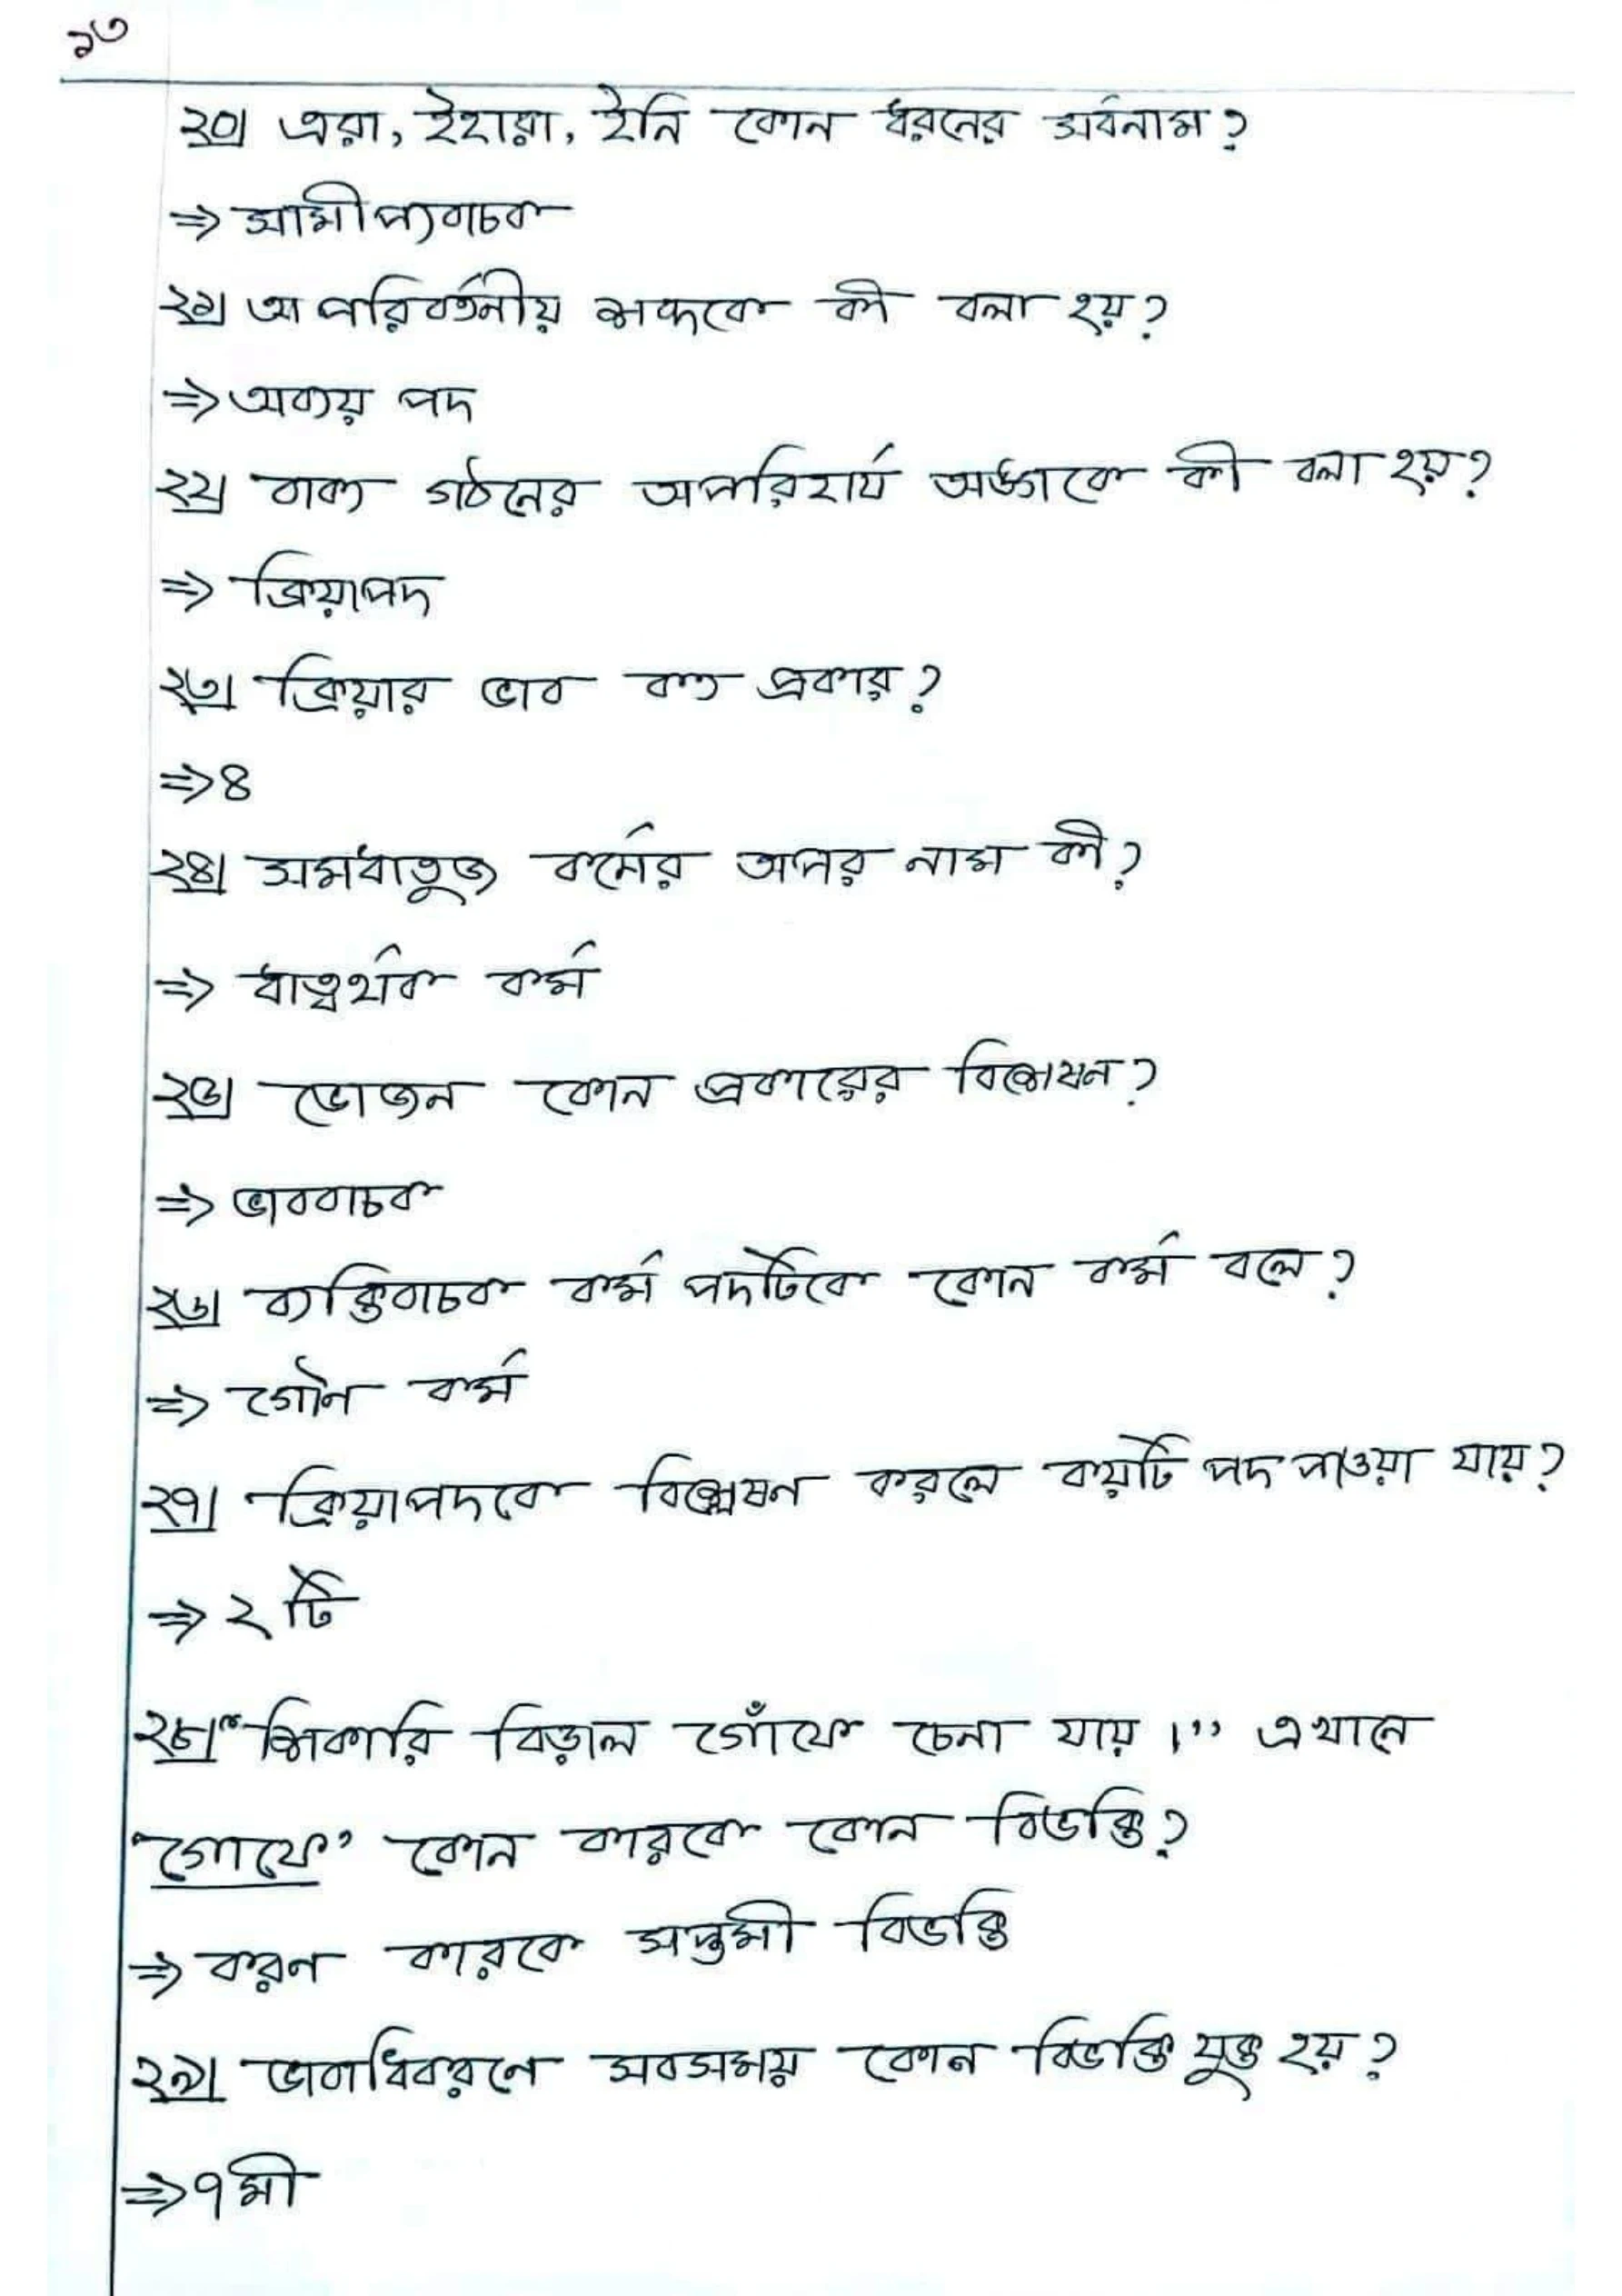 ১৩
২০। এরা, ইহারা, ইনি কোন ধরনের সর্বনাম?
⇒ সামীপ্যবাচক
২১। অপরিবর্তনীয় শব্দকে কী বলা হয়?
⇒ অব্যয় পদ
২২। বাক্য গঠনের অপরিহার্য অঙ্গকে কী বলা হয়?
⇒ ক্রিয়াপদ
২৩। ক্রিয়ার ভাব কত প্রকার?
⇒ ৪
২৪। সমধাতুজ কর্মের অপর নাম কী?
⇒ ধাত্বর্থক কর্ম
২৫। ভোজন কোন প্রকারের বিশেষন?
⇒ ভাববাচক
২৬। ব্যক্তিবাচক কর্ম পদটিকে কোন কর্ম বলে?
⇒ গৌন কর্ম
২৭। ক্রিয়াপদকে বিশ্লেষন করলে কয়টি পদ পাওয়া যায়?
⇒ ২ টি
২৮। "শিকারি বিড়াল গোঁফে চেনা যায়।" এখানে
'গোফে' কোন কারকে কোন বিভক্তি?
⇒ করন কারকে সপ্তমী বিভক্তি
২৯। ভাবাধিকরনে সবসময় কোন বিভক্তি যুক্ত হয়?
⇒ ৭মী